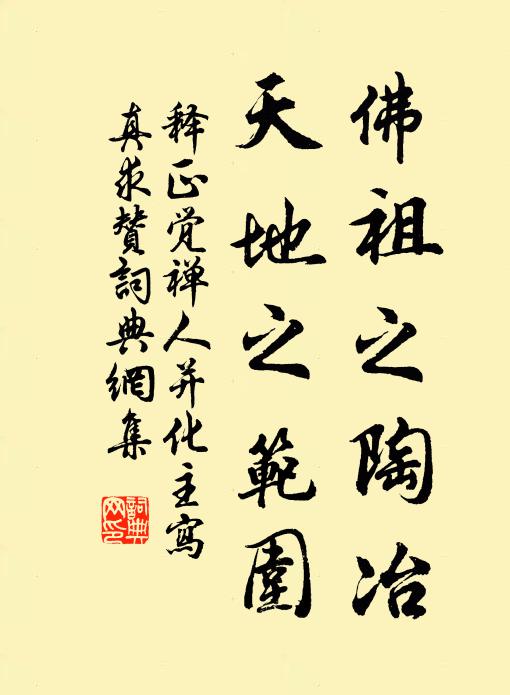 佛祖之陶冶
天地之範圍
释正觉禅人并化主寫
真求贊詞典網集
詞典
网印